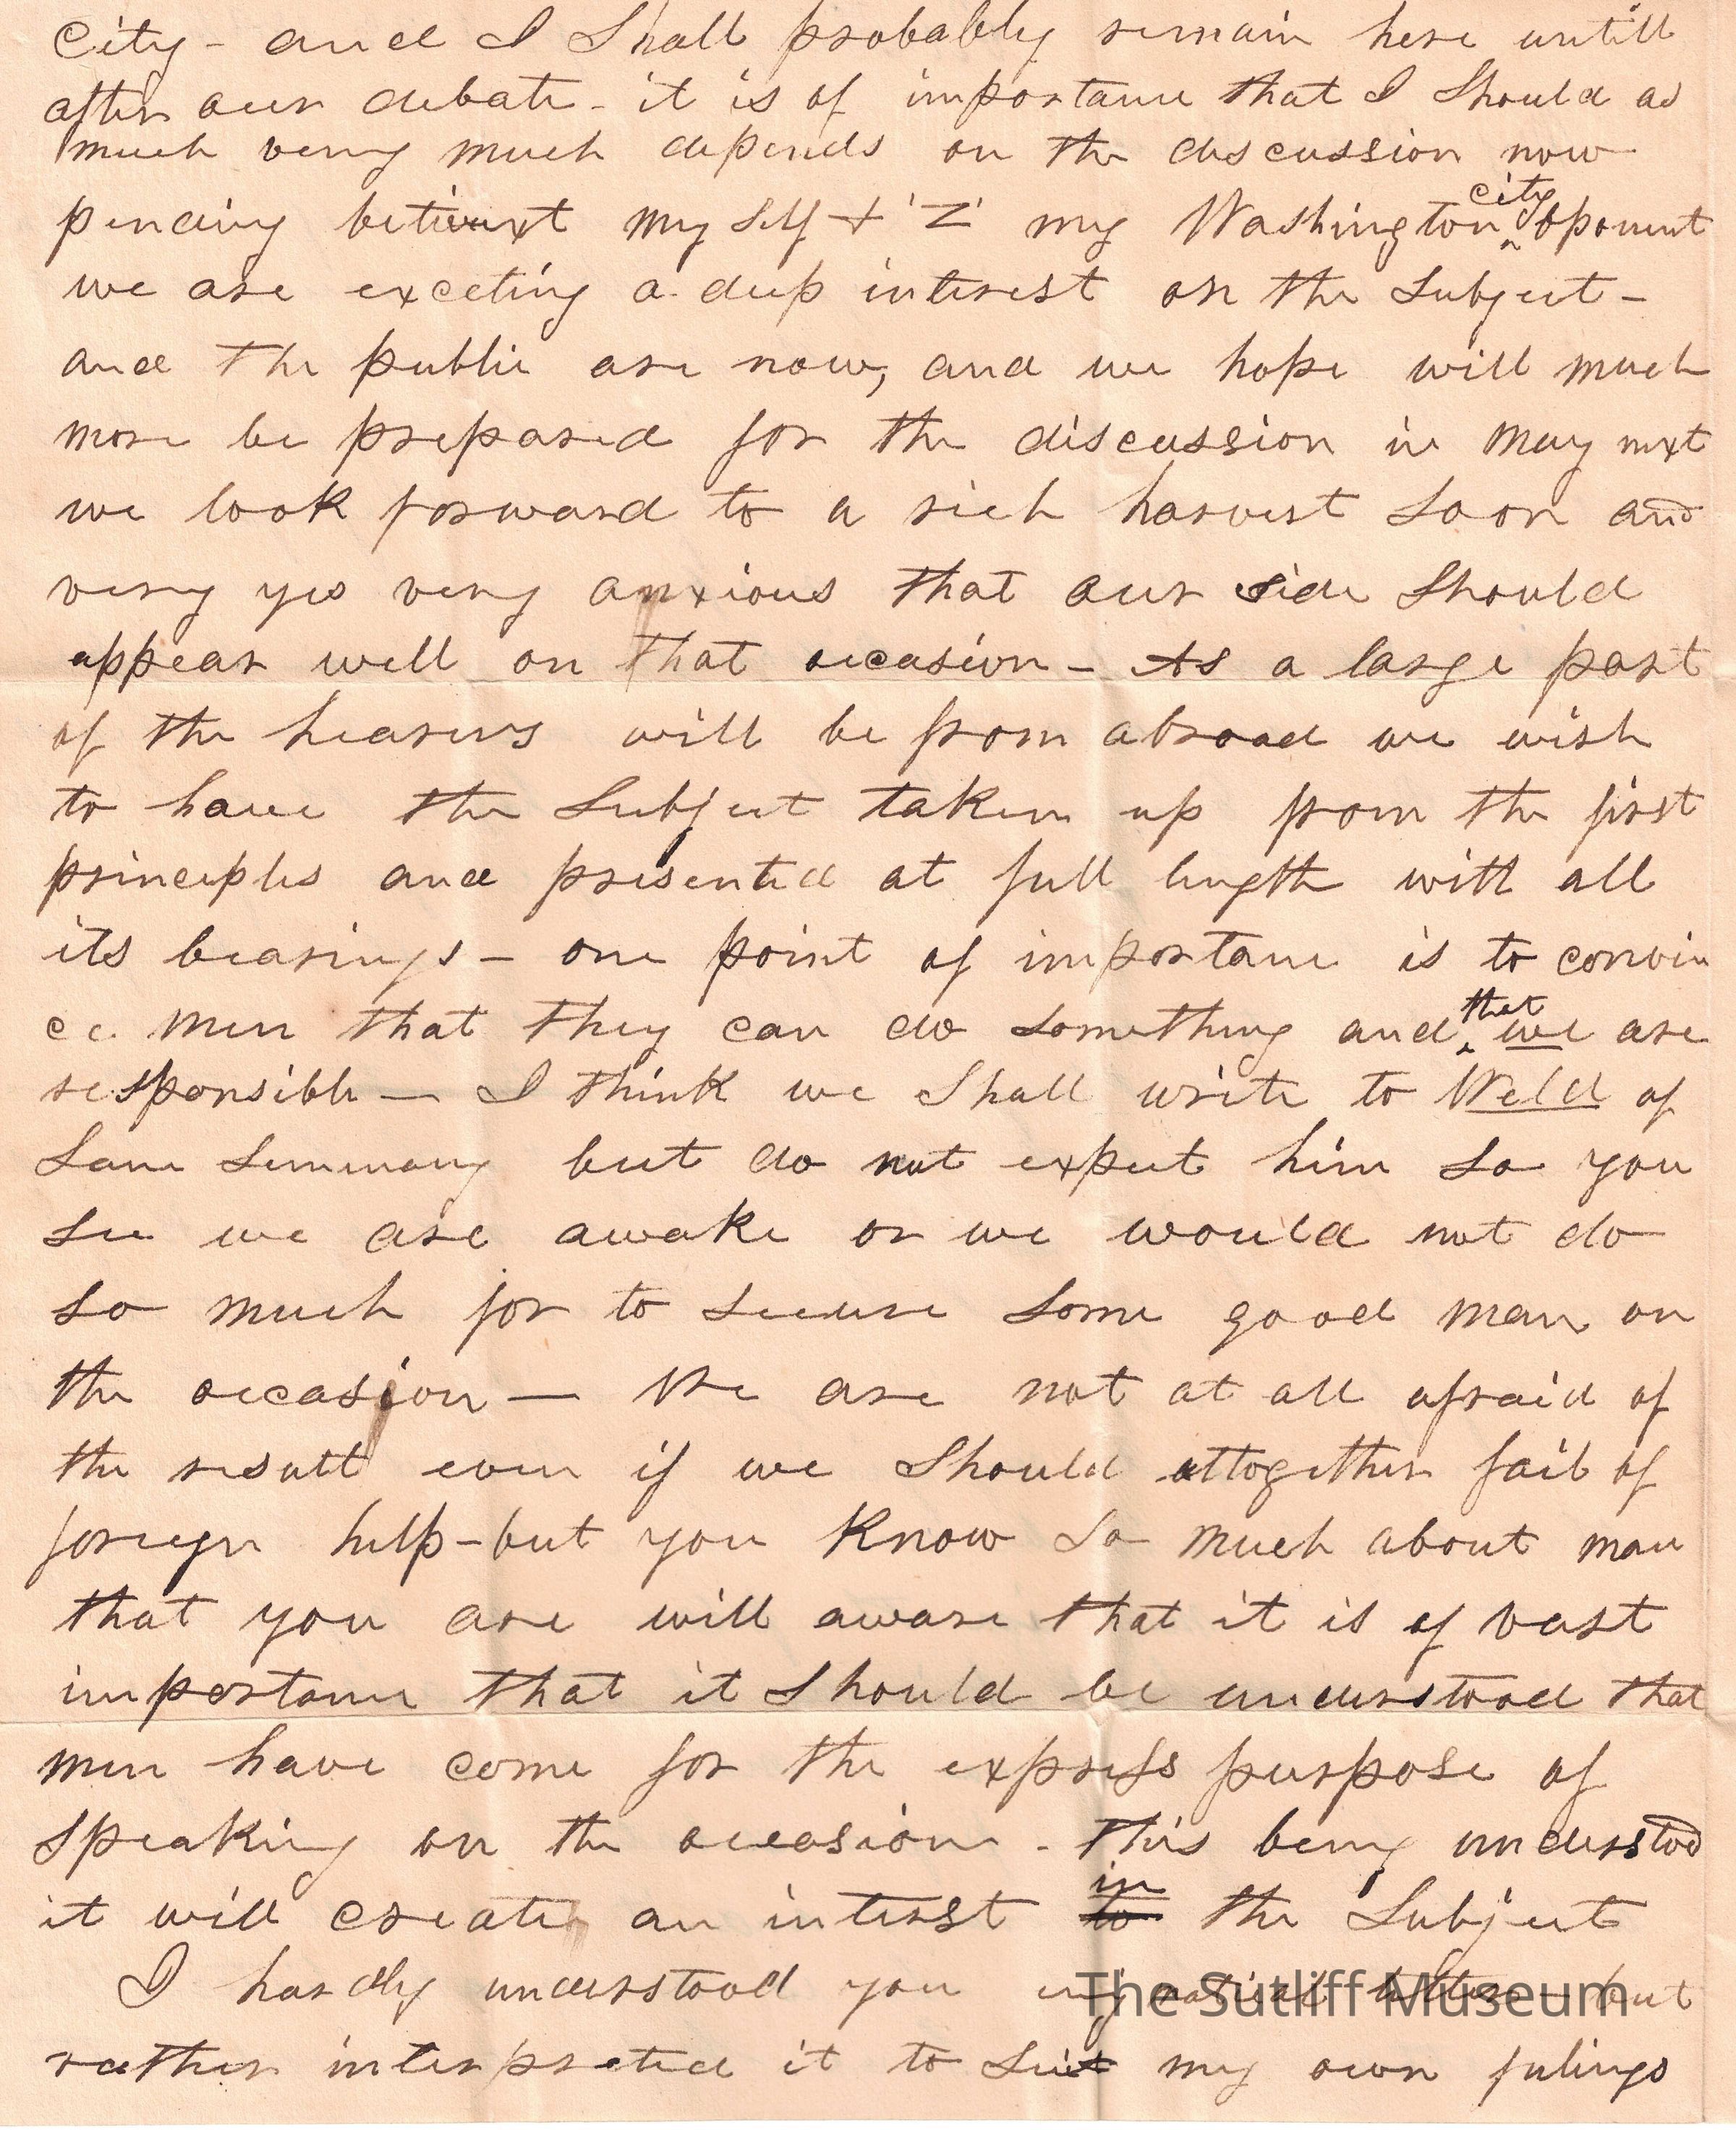 City - and I Shall probably remain here untill
after our debate - it is of importance that I Should as
much very much depends on the discussion now
pending betwixt my Self + 'Z' my Washington city oponent
we are exceting a deep interest on the Subject -
and the public are now, and we hope will much
more be prepared for the discussion in May next
we look forward to a rich harvest Soon and
very yes very anxious that our side Should
appear well on that occasion - As a large part
of the hearers will be from abroad we wish
to have the Subject taken up from the first
principles and presented at full length with all
its bearings - one point of importance is to convin
ce men that they can do Something and that we are
responsible - I think we Shall write to Weld of
Lane Seminary but do not expect him So you
See we are awake or we would not do
So much for to Secure Some good man on
the occasion - We are not at all afraid of
the result even if we Should altogether fail of
foreign help - but you Know So much about man
that you are well aware that it is of vast
importance that it Should be understood that
men have come for the express purpose of
Speaking on the occasion - this being understood
it will create an interest in to the Subject
I hardly understood you letter - but
rather interpreted it to Suit my own feelings
The Sutliff Museum